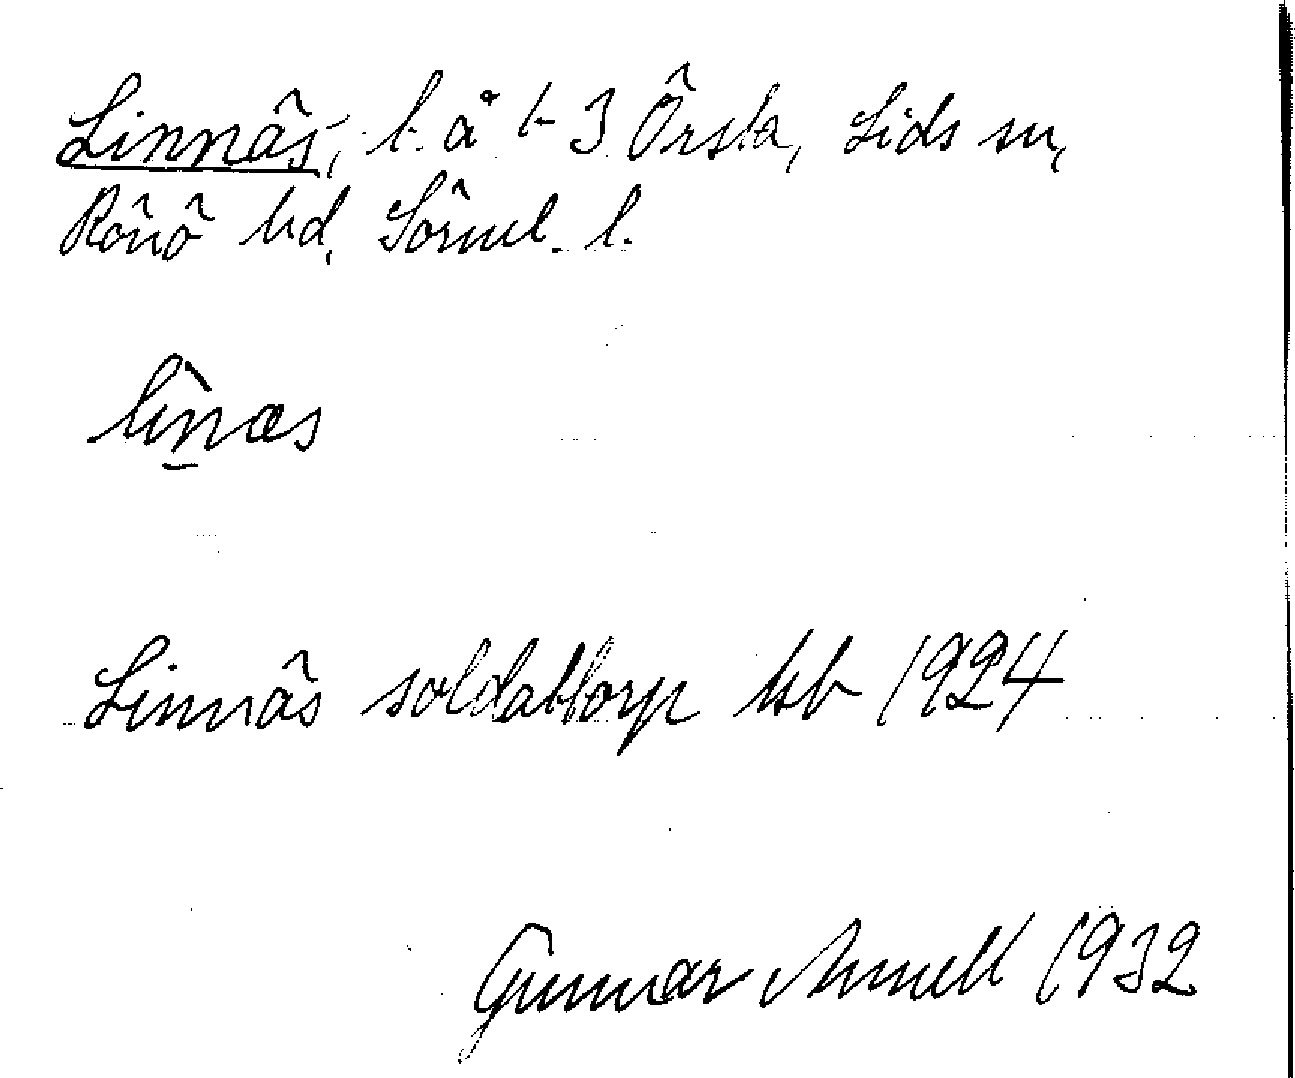 Linnäs, l. å t. 3 Örsta, Lids sn,
Rönö hd, Sörml. l.
lìnæs
Linnäs soldattorp kb 1924
Gunnar Annell 1932